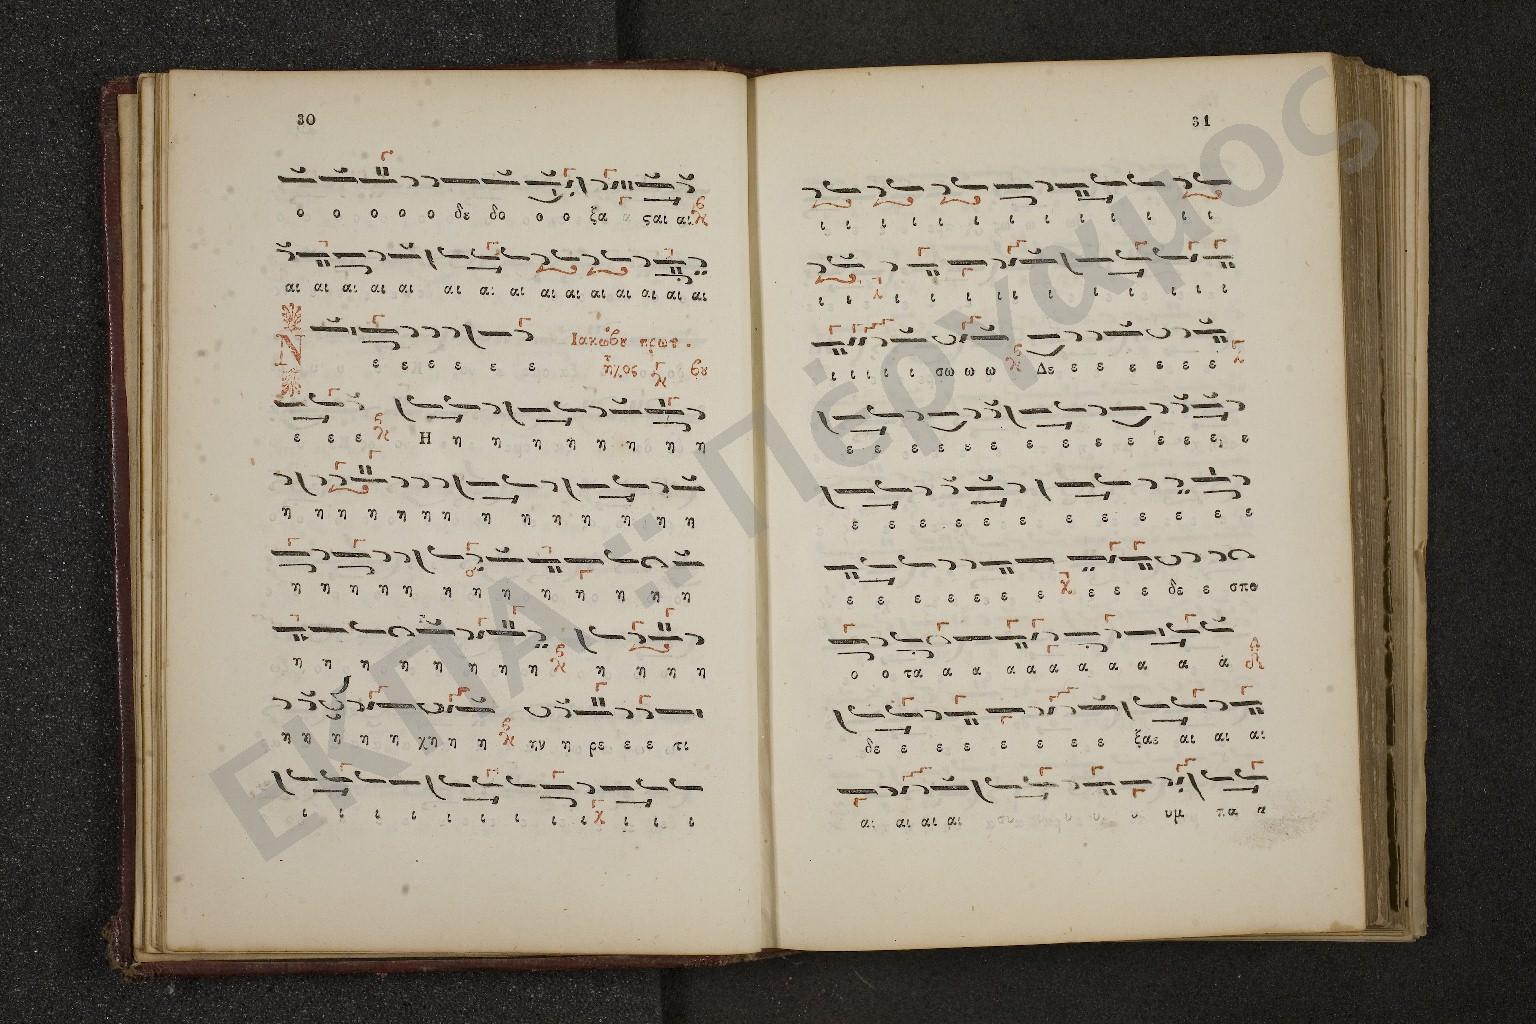 30
ο ο ο ο ο δε δο ο ο ξα α ςαι αι
αι αι αι αι αι αι αι αι αι αι αι αι αι αι αι
Ν ε ε ε ε ε ε Ιακώβου πρωτ.
ἦχος βου
ε ε ε Η η η η η η η η η
η η η η η η η η η η η η η η
η η η η η η η η η η η η
η η η η η η η η η η η η
η η η η η χη η η ην η ρε ε ε τι
ι ι ι ι ι ι ι ι ι ι ι ι
31
ι ι ι ι ι ι ι ι ι ι ι ι ι
ι ι ι ι ι ι ι ι ι ι ι ι
ι ι ι ι ι σω ω ω Δε ε ε ε ε ε ε
ε ε ε ε ε ε ε ε ε ε ε ε ε ε
ε ε ε ε ε ε ε ε ε ε ε ε
ε ε ε ε ε ε ε ε ε ε δε ε σπο
ο ο τα α α α α α α α α α α
δε ε ε ε ε ε ε ε ξαε αι αι αι
αι αι αι αι συ υ υ υ υμ πα α
ΕΚΠΑ :: Πέργαμος